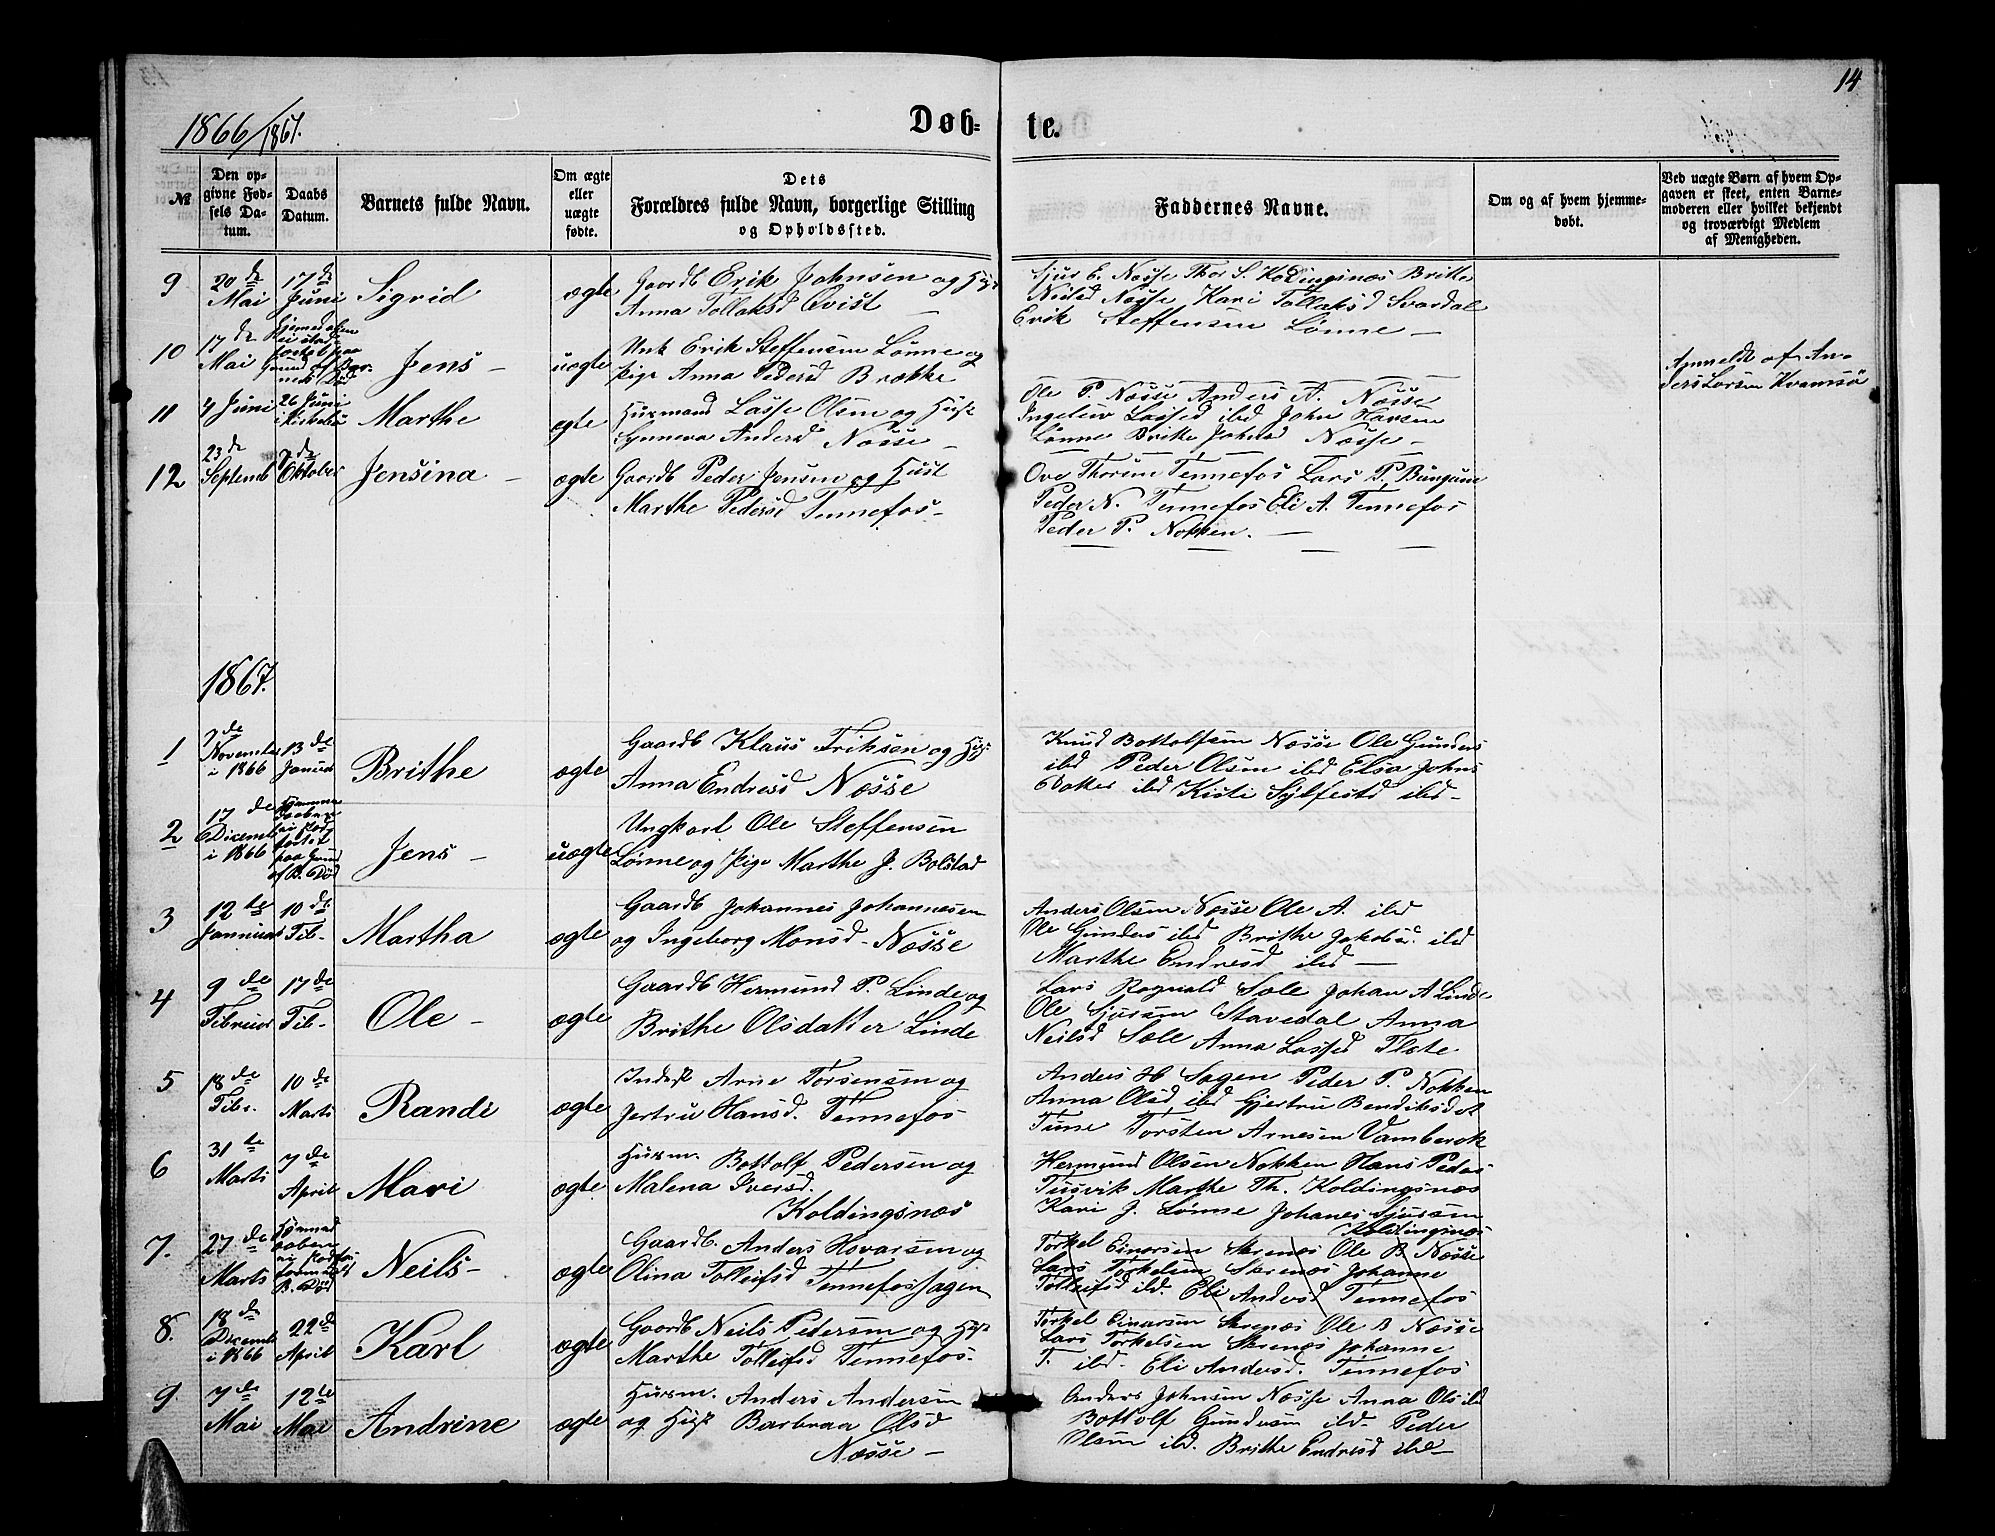 14
1866/1867.
Døb-
te.
№
Den op-
givne Fød-
sels Da-
tum.
Daabs
Datum.
Barnets fulde Navn.
Om ægte
eller
uægte
fødte.
Dets
Forældres fulde Navn, borgerlige Stilling
og Opholdssted.
Faddernes Navne.
Om og af hvem hjemme-
døbt.
Ved uægte Børn af hvem Op-
gaven er skeet, enten Barne-
moderen eller hvilket bekjendt
og troværdigt Medlem
af Menigheden.
9
20de
Mai
17de
Juni
Sigrid
ægte
Gaardb Erik Johnsen og
Anna Tollaksd Qvist
Sjur E. Nøsse Thor S. Koldingsnæs Brithe
Neilsd Nøsse Kari Tollaksd Svardal
Erik Steffensen Lønne
10
17de
Mai
Jens
uægte
Unk Erik Steffensen Lønne og
Pige Anna Pedersd Brække
Anmeldt af An-
ders Larsen Kvamsø
11
4 Juni
26 Juni
Marthe
ægte
Husmand Lasse Olsen og
Synneva Andersd Nøsse
Ole P. Nøsse Anders A. Nøsse
Ingeleiv Lassed ibd John Havsen
Lønne Brithe Johnsd Nøsse
12
23de
Septemb
7de
Oktober
Jensina
ægte
Gaardb Peder Jensen og Hust
Marthe Pedersd Tennefos
Ove Thorsen Tennefos Lars P. Bungum
Peder N. Tennefos Eli A. Tennefos
Peder P. Nokken.
1867.
1
November
i 1866
13de
Januar
Brithe
ægte
Gaardb Klaus Eriksen og
Anna Endresd Nøsse
Knud Bottolfsen Nøsse Ole Gunders
ibd Peder Olsen ibd Elsa Johns
Datter ibd Kisti Sylfestd ibd
2
17de
Decemb
i 1866
Jens
uægte
Ungkarl Ole Steffensen
Lønne og Pige Marthe J. Bolstad
3
12te
Januar
10de
Feb
Martha
ægte
Gaardb Johannes Johannesen
og Ingeborg Monsd Nøsse
Anders Olsen Nøsse Ole A. ibd
Ole Gunders ibd Brithe Jakobsd ibd
Marthe Endresd ibd
4
9de
Februar
17de
Feb
Ole
ægte
Gaardb Hermund P. Linde og
Brithe Olsdatter Linde
Lars Rognald Sæle Johan A Linde
Ole Sjursen Stavedal Anna
Neilsd Sæle Anna Lassed Flete
5
18de
Feb.
10de
Marts
Randi
ægte
Inderst Arne Torsensen og
Jertru Hansd. Tennefos
Anders H Sagen Peder P. Nokken
Anna Olsd ibd Gjertru Bendiksd
Tune Torsten Arnesen Vamberok
6
31te
Marts
7de
April
Mari
ægte
Husm. Bottolf Pedersen og
Malena Iversd.
Koldingsnæs
Hermund Olsen Nokken Hans Peders
Tusvik Marthe Th. Koldingsnæs
Kari J. Lønne Johanes Sjursen
Koldingsnæs
7.
27de
Marts
Neils
ægte
Gaardb. Anders Havarsen og
Olina Tolleifsd Tennefossagen
Torkel Einarsen Skrenæs Ole B Nøsse
Lars Torkelsen Skrenæs Johanne
Tolleifsd ibd. Eli Andersd Tennefos
8.
18de
Decemb
i 1866
22de
April
Karl
ægte
Gaardb Neils Pedersen og
Marthe Tolleifsd Tennefos
Torkel Einarsen Skrenæs Ole B Nøsse
Lars Torkelsen Skrenæs Johanne
T. ibd. Eli Andersd. Tennefos
9.
7de
Mai
12te
Mai
Andrine
ægte
Husm. Anders Andersen
og Barbraa Olsd
Nøsse
Anders Johnsen Nøsse Anna Ols ibd
Bottolf Gundersen ibd. Peder
Olsen ibd. Brithe Endresd ibd